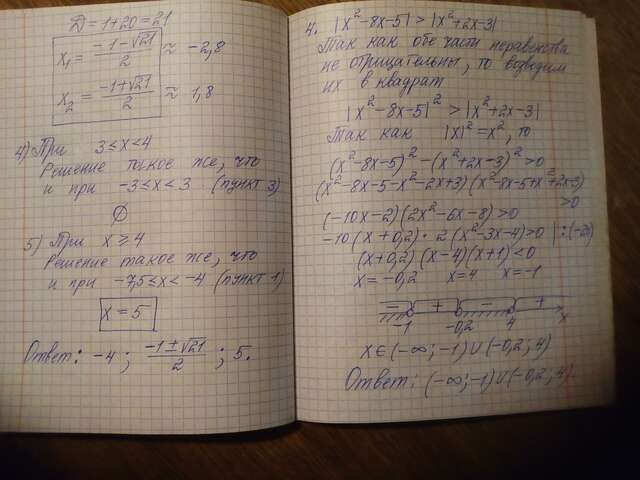 D = 1+20 = 21
x₁ = (-1-√21)/2 ≈ -2,8
x₂ = (-1+√21)/2 ≈ 1,8
4) При 3≤x<4
Решение такое же, что
и при -3≤x<3 (пункт 3)
∅
5) При x≥4
Решение такое же, что
и при -7,5≤x<-4 (пункт 1)
x = 5
Ответ: -4; (-1±√21)/2; 5.
4. |x²-8x-5| > |x²+2x-3|
Так как обе части неравенства
не отрицательны, то возводим
их в квадрат
|x²-8x-5|² > |x²+2x-3|²
Так как |x|² = x², то
(x²-8x-5)² - (x²+2x-3)² > 0
(x²-8x-5-x²-2x+3)(x²-8x-5+x²+2x-3)
>0
(-10x-2)(2x²-6x-8)>0
-10(x+0,2)·2(x²-3x-4)>0 |:(-20)
(x+0,2)(x-4)(x+1)<0
x=-0,2 x=4 x=-1
- + - +
-1 -0,2 4 x
x∈(-∞;-1)∪(-0,2;4)
Ответ: (-∞;-1)∪(-0,2;4).